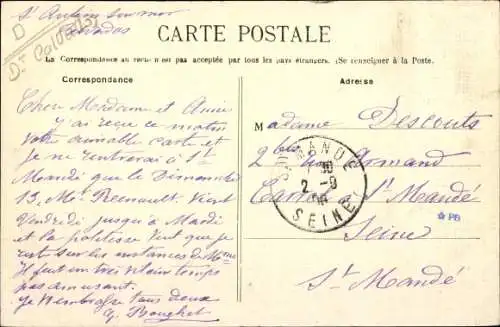 St Aubin sur mer
Calvados
D
Dt Calvados
CARTE POSTALE
La Correspondance au recto n'est pas acceptée par tous les pays étrangers. (Se renseigner à la Poste.
Correspondance
Adresse
Chère Madame et Amie
J'ai reçu ce matin
votre aimable carte et
je ne rentrerai à St
Mandé que le Dimanche
13, Mr Renault vient
Vendredi jusqu'à Mardi
et la politesse veut que je
reste sur les instances de Mme
Il fait un très vilain temps
pas amusant.
Je vous embrasse tous deux
Madame Descouts
2 bis Armand
Carrel St Mandé
Seine
St Mandé
ST MANDÉ
2 - 9
SEINE
PB